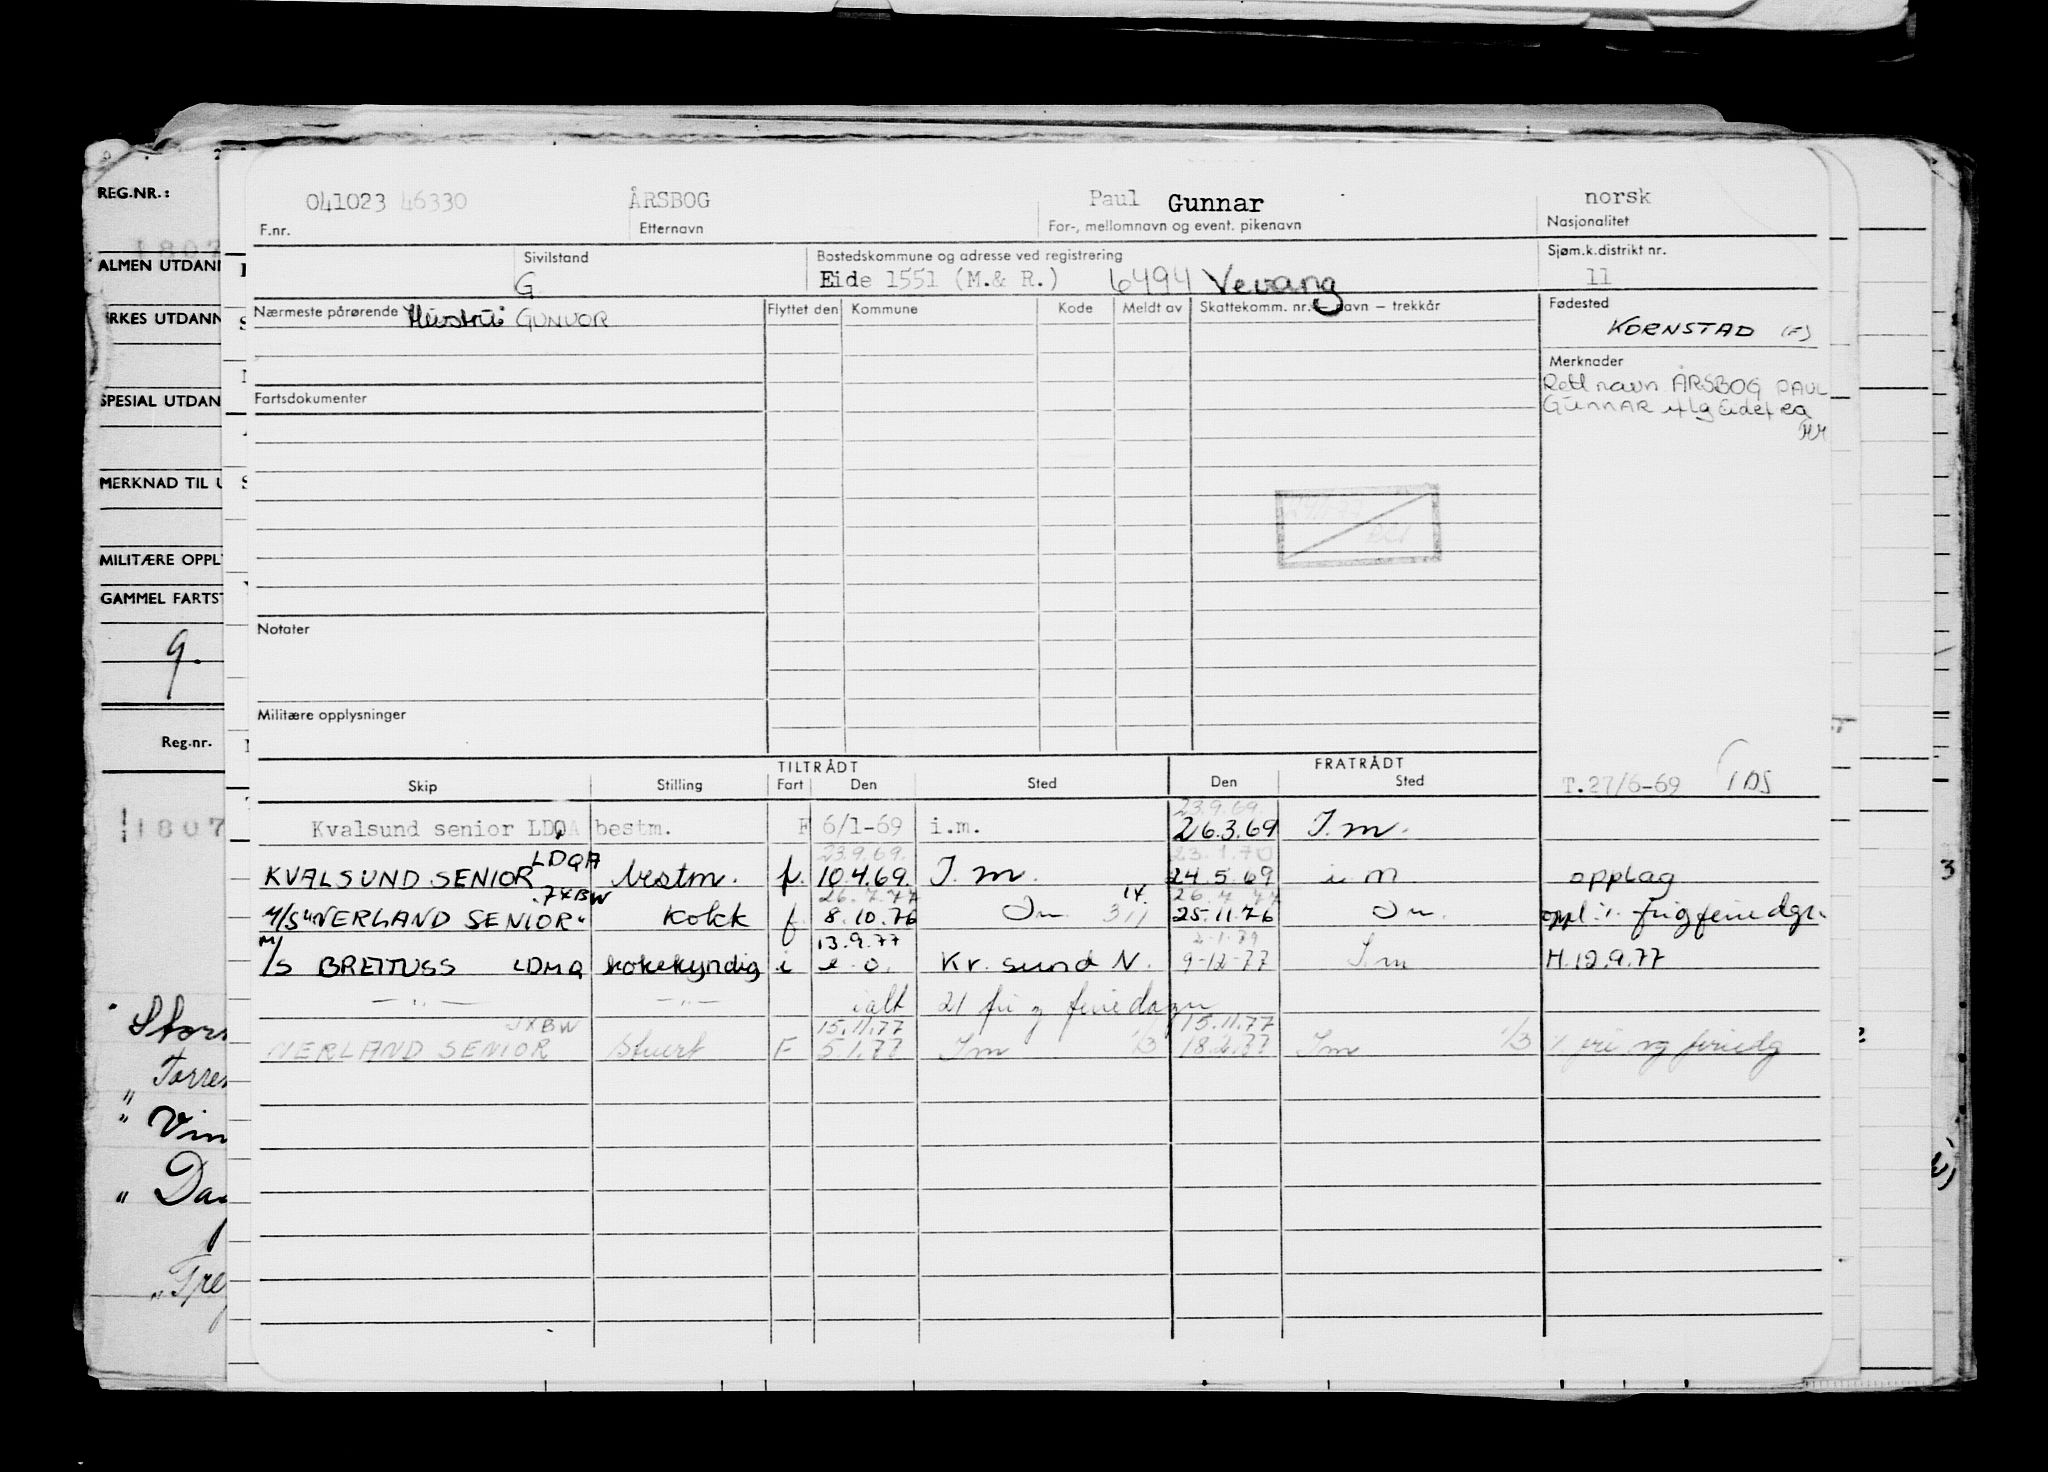 REG.NR.:
041023 46330
ÅRSBOG
Paul Gunnar
norsk
F.nr.
Etternavn
For-, mellomnavn og event. pikenavn
Nasjonalitet
ALMEN UTDAN
Sivilstand
G
Bostedskommune og adresse ved registrering
Eide 1551 (M.& R.) 6494 Vevang
Sjøm.k.distrikt nr.
11
RKES UTDANN
Nærmeste pårørende Hustru GUNVOR
Flyttet den
Kommune
Kode
Meldt av
Skattekomm. nr. – navn – trekkår
Fødested
KORNSTAD (F)
Merknader
Rett navn ÅRSBOG PAUL
GUNNAR
SPESIAL UTDAN
Fartsdokumenter
MERKNAD TIL U
MILITÆRE OPPL
GAMMEL FARTST
9.
Notater
Militære opplysninger
Reg.nr.
TILTRÅDT
FRATRÅDT
Skip
Stilling
Fart
Den
Sted
Den
Sted
T.27/6-69
1807
23.9.69.
Kvalsund senior LDQA bestm. F 6/1-69 i.m. 26.3.69 I.m.
LDQA 23.9.69. 23.1.70
KVALSUND SENIOR bestm. f. 10.4.69. I.m. 24.5.69 i.m. opplag
JXBW 26.7.77 26.7.77
M/S "NERLAND SENIOR" Kokk f 8.10.76 Im 25.11.76 Im.
13.9.77 2.1.79
M/S BREITUSS LDMQ kokekyndig i e.o. Kr.sund N. 9-12-77 I.m H.12.9.77
— " — — " — ialt 21 fri og feriedager
JXBW 15.11.77 15.11.77
NERLAND SENIOR Stuert F 5.1.77 Im 1/3 18.2.77 Im 1/3 fri og feriedg
Stor
Torre
" Vin
" Da